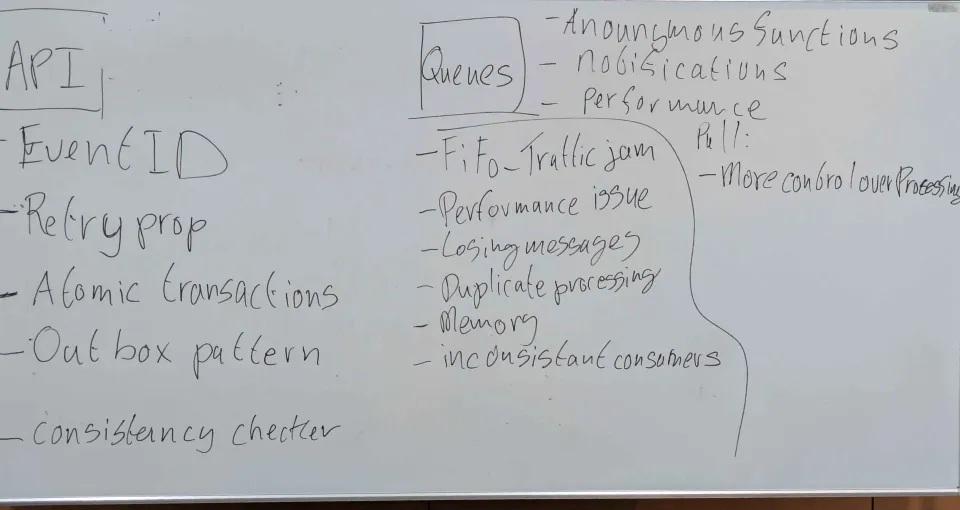 API
- Event ID
- Retry prop
- Atomic transactions
- Outbox pattern
- Consistency checker
Queues
- Anoungmous functions
- Notifications
- Performance
- FiFo - Traffic jam
- Performance issue
- Losing messages
- Duplicate processing
- Memory
- inconsistant consumers
Pull:
- More control over Processing